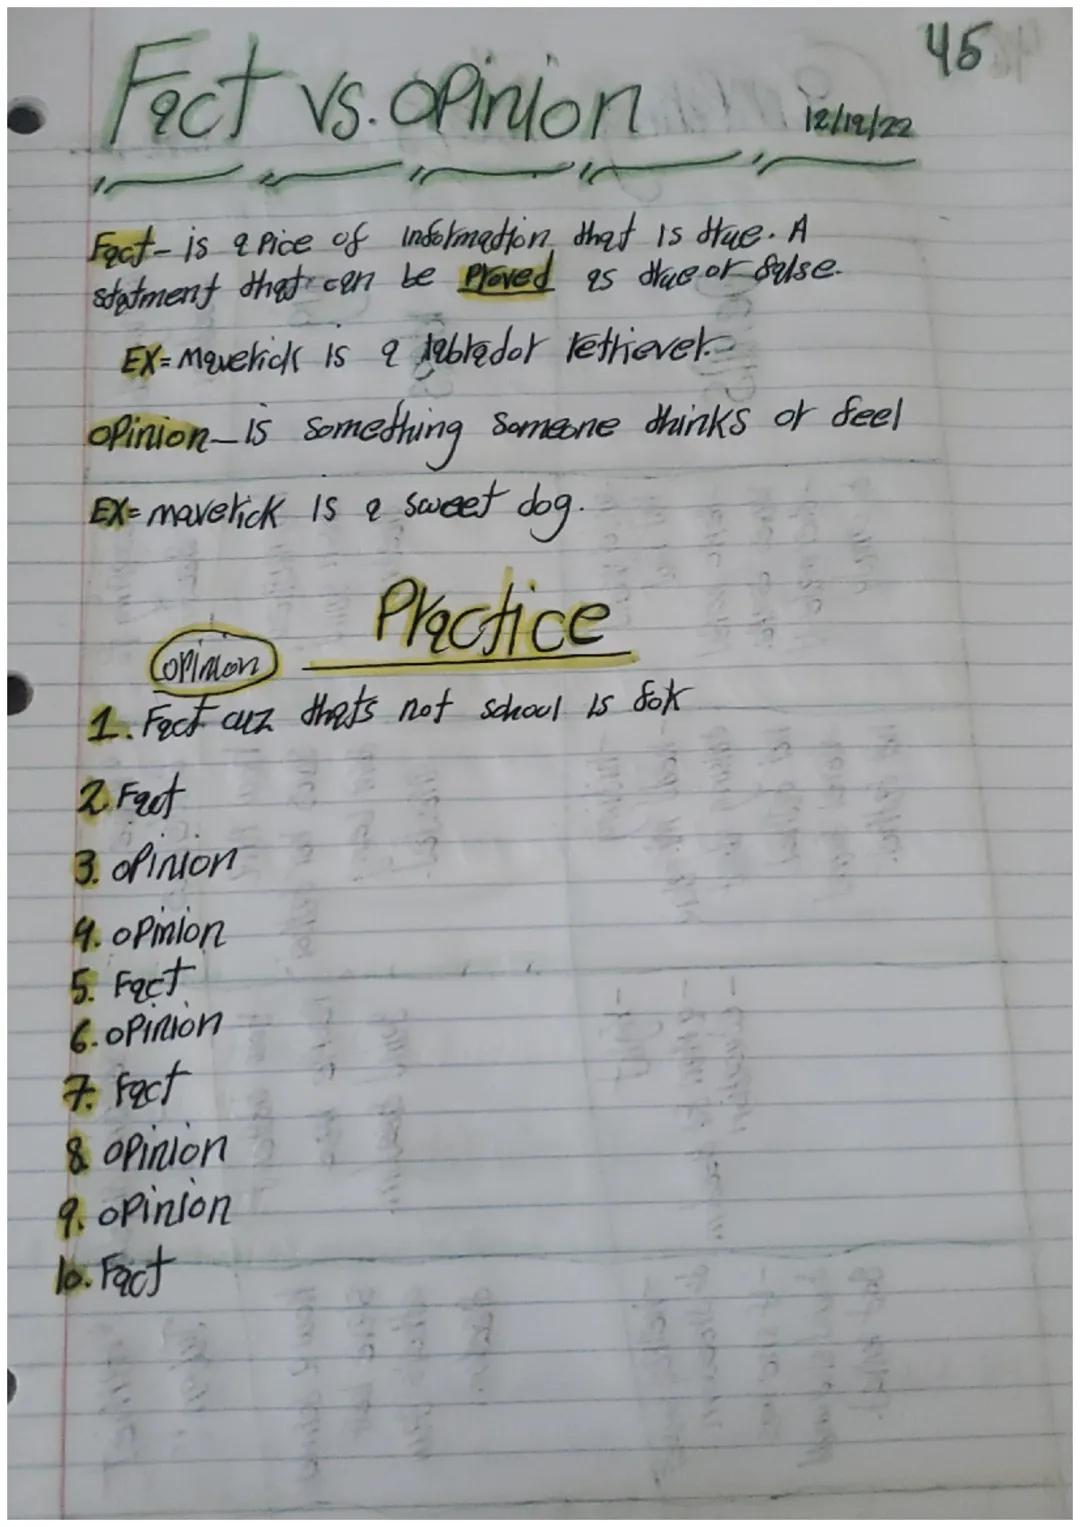 45
Fact vs. opinion
12/19/22
Fact - is a Pice of information that is true. A
statment that can be Proved as true or false.
EX= Maverick is a labrador retriever.
opinion - is something someone thinks or feel
EX= maverick is a sweet dog.
Practice
opinion
1. Fact cuz thats not school is
2. Fact
3. opinion
4. opinion
5. Fact
6. opinion
7. Fact
8 opinion
9. opinion
10. Fact